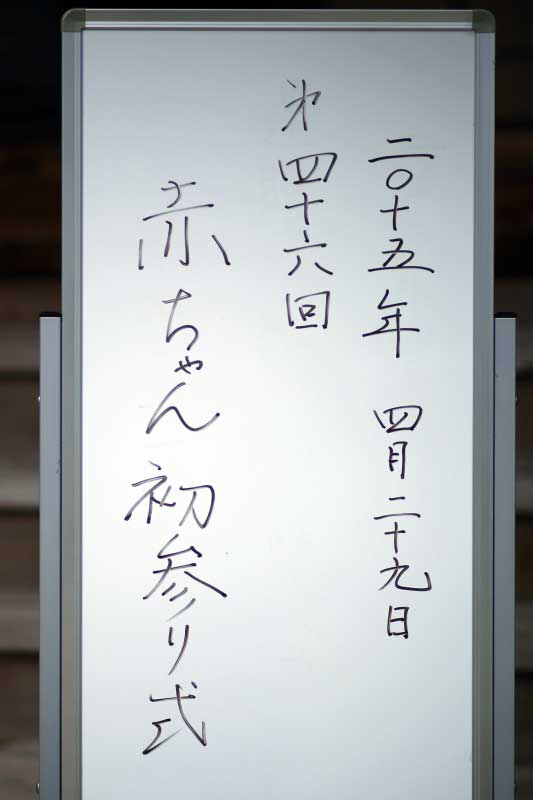 二〇十五年 四月二十九日
㐧四十六回
赤ちゃん初参り式